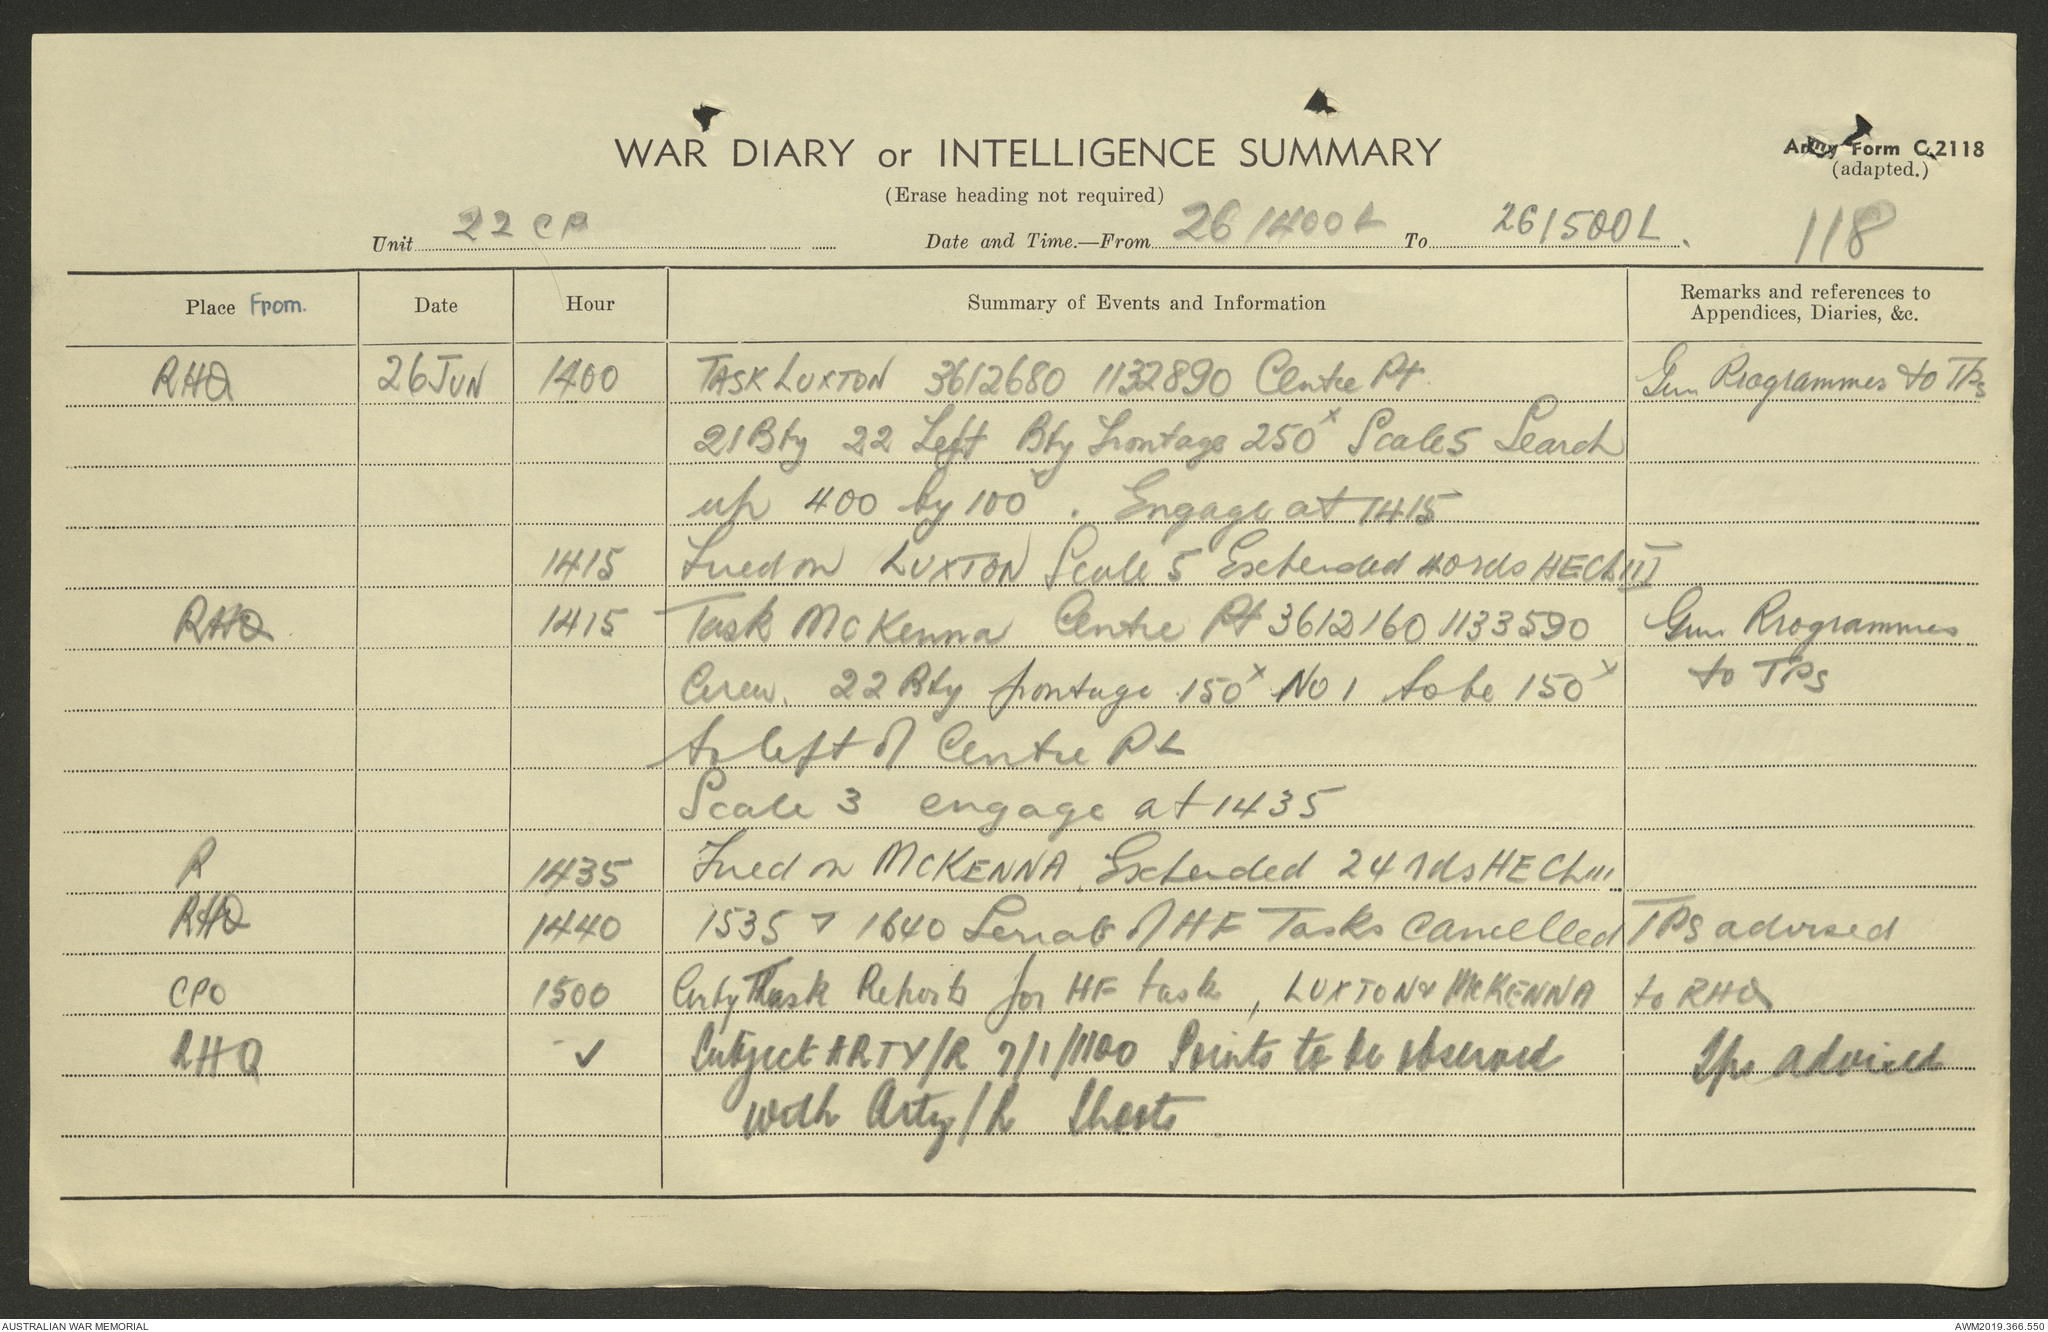 WAR DIARY or INTELLIGENCE SUMMARY
Army Form C.2118
(adapted.)
(Erase heading not required)
Unit 22 CP Date and Time.—From 26 1400L To 261500L. 118
Place From. Date Hour Summary of Events and Information Remarks and references to Appendices, Diaries, &c.
RHQ 26 JUN 1400 TASK LUXTON 3612680 1132890 Centre Pt. Gun Programmes to TPs
21 Bty 22 Left Bty Frontage 250x Scale 5 Search
up 400 by 100x. Engage at 1415
1415 Fired on LUXTON Scale 5 Expended 40 rds HE Ch III
RHQ 1415 Task McKenna Centre Pt 3612160 1133590 Gun Programmes
22 Bty frontage 150x No 1 to be 150x to TPs
to left of Centre Pt
Scale 3 engage at 1435
R 1435 Fired on McKENNA. Expended 24 rds HE Ch III
RHQ 1440 1535 & 1640 Serials of HF Tasks cancelled TPs advised
CPO 1500 Task Reports for HF task, LUXTON & McKENNA to RHQ
RHQ ✓ Subject ARTY/R 7/1/1100 Points to be observed Tps advised
with Arty/R Shoots
AUSTRALIAN WAR MEMORIAL
AWM2019.366.550